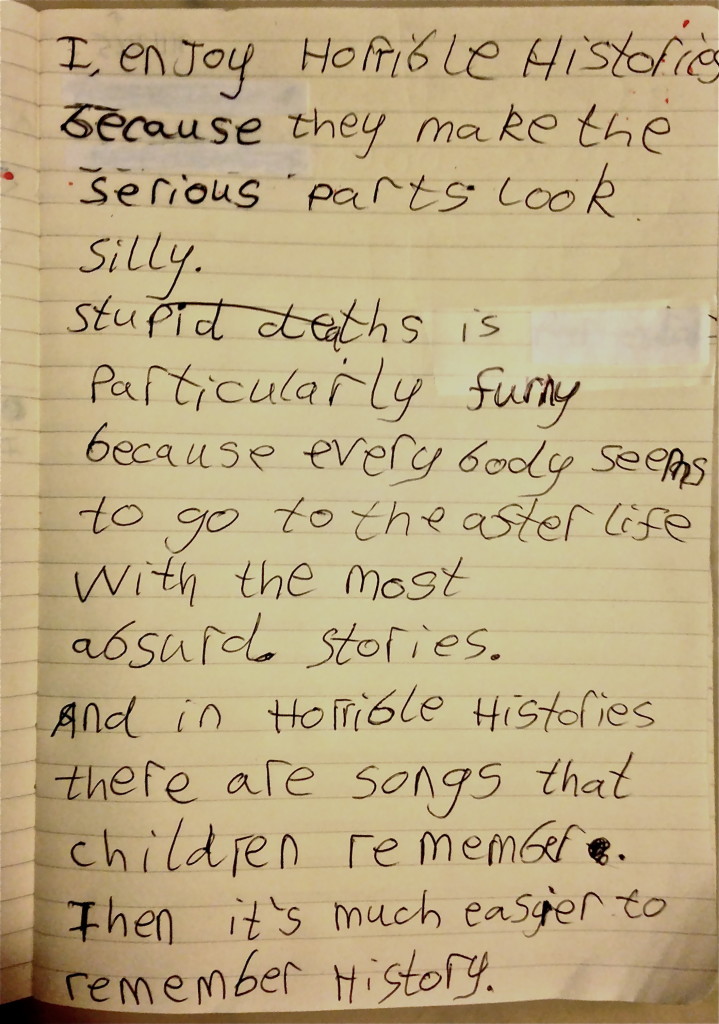 I, enjoy Horrible Histories
because they make the
serious parts look
silly.
stupid deaths is
particularly funny
because every body seems
to go to the after life
with the most
absurd stories.
And in Horrible Histories
there are songs that
children remember.
Then it's much easier to
remember History.